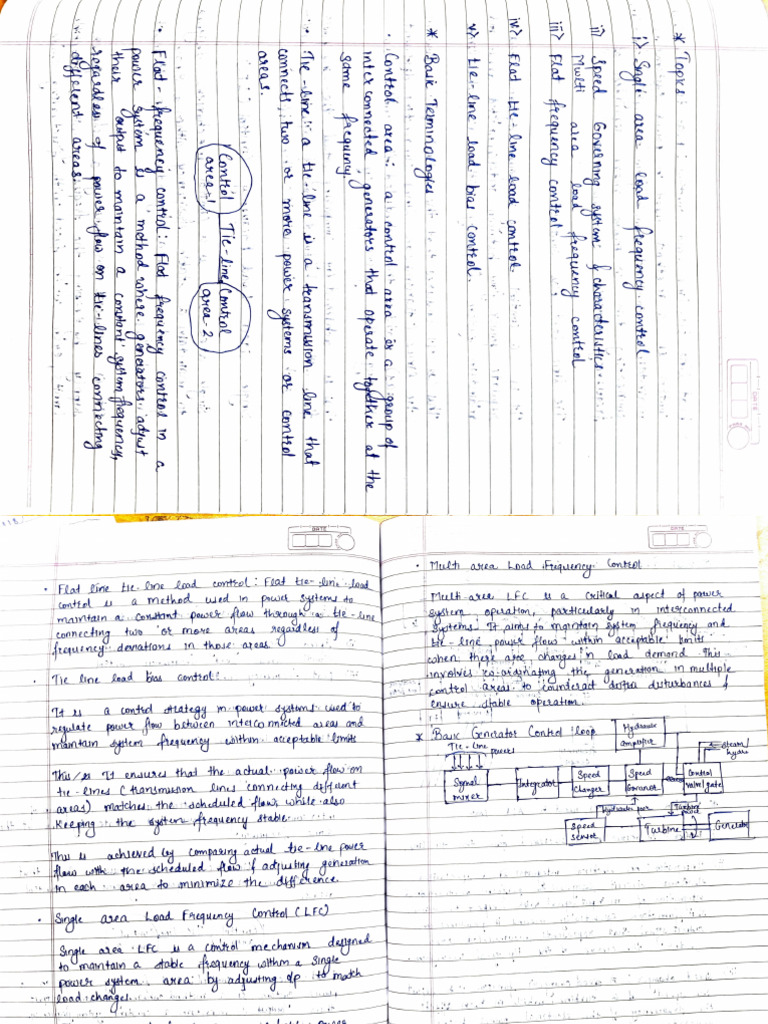 * Topics
i) Single area load frequency control
ii) Speed Governing system & characteristics.
Multi area load frequency control
iii) Flat frequency control.
iv) Flat tie-line load control.
v) tie-line load bias control.
* Basic Terminologies
• Control area: a control area is a group of
interconnected generators that operate together at the
same frequency.
• Tie-line: a tie-line is a transmission line that
connects two or more power systems or control
areas.
Control area-1
Tie-line
Control area-2
• Flat-frequency control: Flat frequency control in a
power system is a method where generators adjust
their output to maintain a constant system frequency,
regardless of power flow on tie-lines connecting
different areas.
DATE
• Flat line tie-line load control: Flat tie-line load
control is a method used in power systems to
maintain a constant power flow through a tie-line
connecting two or more areas regardless of
frequency deviations in those areas
• Tie line load bias control:
It is a control strategy in power systems used to
regulate power flow between interconnected areas and
maintain system frequency within acceptable limits
This is It ensures that the actual power flow on
tie-lines (transmission lines connecting different
areas) matches the scheduled flow, while also
keeping the system frequency stable.
This is achieved by comparing actual tie-line power
flow with the scheduled flow & adjusting generation
in each area to minimize the difference.
• Single area Load Frequency Control (LFC)
Single area LFC is a control mechanism designed
to maintain a stable frequency within a single
power system area by adjusting o/p to match
load changes.
DATE
• Multi area Load Frequency Control
Multi-area LFC is a critical aspect of power
system operation, particularly in interconnected
systems. It aims to maintain system frequency and
tie-line power flow within acceptable limits
when there are changes in load demand. This
involves co-ordinating the generation in multiple
control areas to counteract disturbances &
ensure stable operation.
* Basic Generator Control loop
Tie-line power
Hydraulic amplifier
steam/hydro
Signal mixer
Integrator
Speed changer
Speed Governor
Control valve/gate
Turbine
Speed sensor
Turbine
Generator